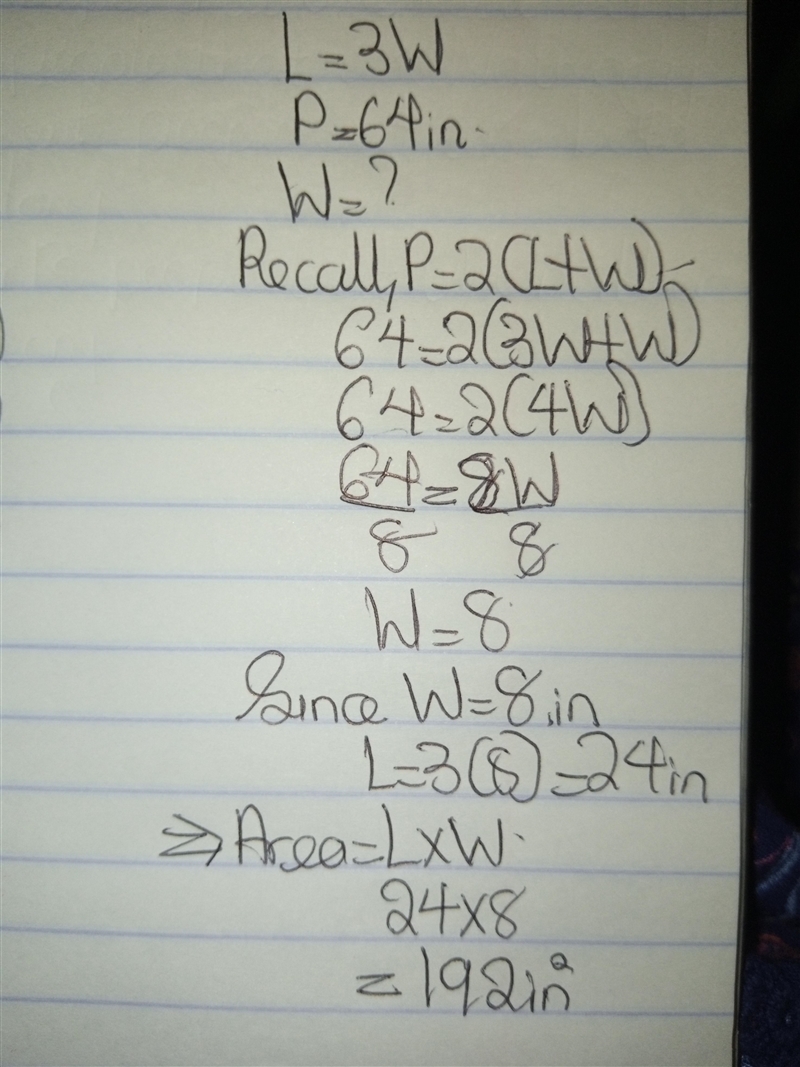 L=3W
P=64in.
W=?
Recall, P=2(L+W)
64=2(3W+W)
64=2(4W)
64=8W
8 8
W=8
Since W=8in
L=3(8)=24in
⇒Area=L×W.
24×8
=192in²